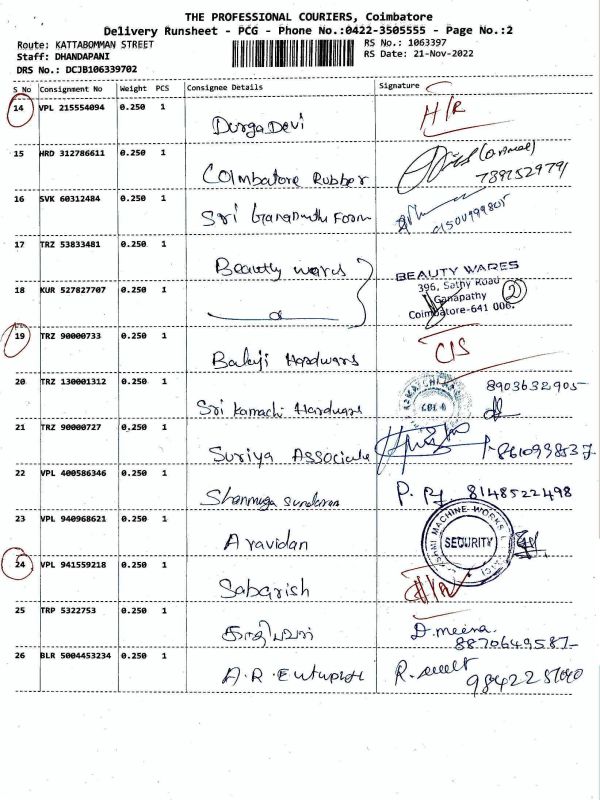 THE PROFESSIONAL COURIERS, Coimbatore
Delivery Runsheet - PCG - Phone No.:0422-3505555 - Page No.:2
Route: KATTABOMMAN STREET
RS No.: 1063397
Staff: DHANDAPANI
RS Date: 21-Nov-2022
DRS No.: DCJB106339702
S No Consignment No Weight PCS Consignee Details Signature
14 VPL 215554094 0.250 1 Durga Devi
15 HRD 312786611 0.250 1 Coimbatore Rubber
16 SVK 60312484 0.250 1 Sri
17 TRZ 53833481 0.250 1 Beauty wares BEAUTY WARES
396, Sathy Road
18 KUR 527827707 0.250 1 Ganapathy 2
Coimbatore-641 006.
19 TRZ 90000733 0.250 1 Balaji Hardwars
20 TRZ 130001312 0.250 1 Sri Kamachi Hardware 8903632905
21 TRZ 90000727 0.250 1 Suriya Associate
22 VPL 400586346 0.250 1 Shanmuga Sundaram 8148522498
23 VPL 940968621 0.250 1 Aravidan MACHINE WORKS
SECURITY
24 VPL 941559218 0.250 1 Sabarish
25 TRP 5322753 0.250 1 D.meena.
8870649587
26 BLR 5004453234 0.250 1 A.R.